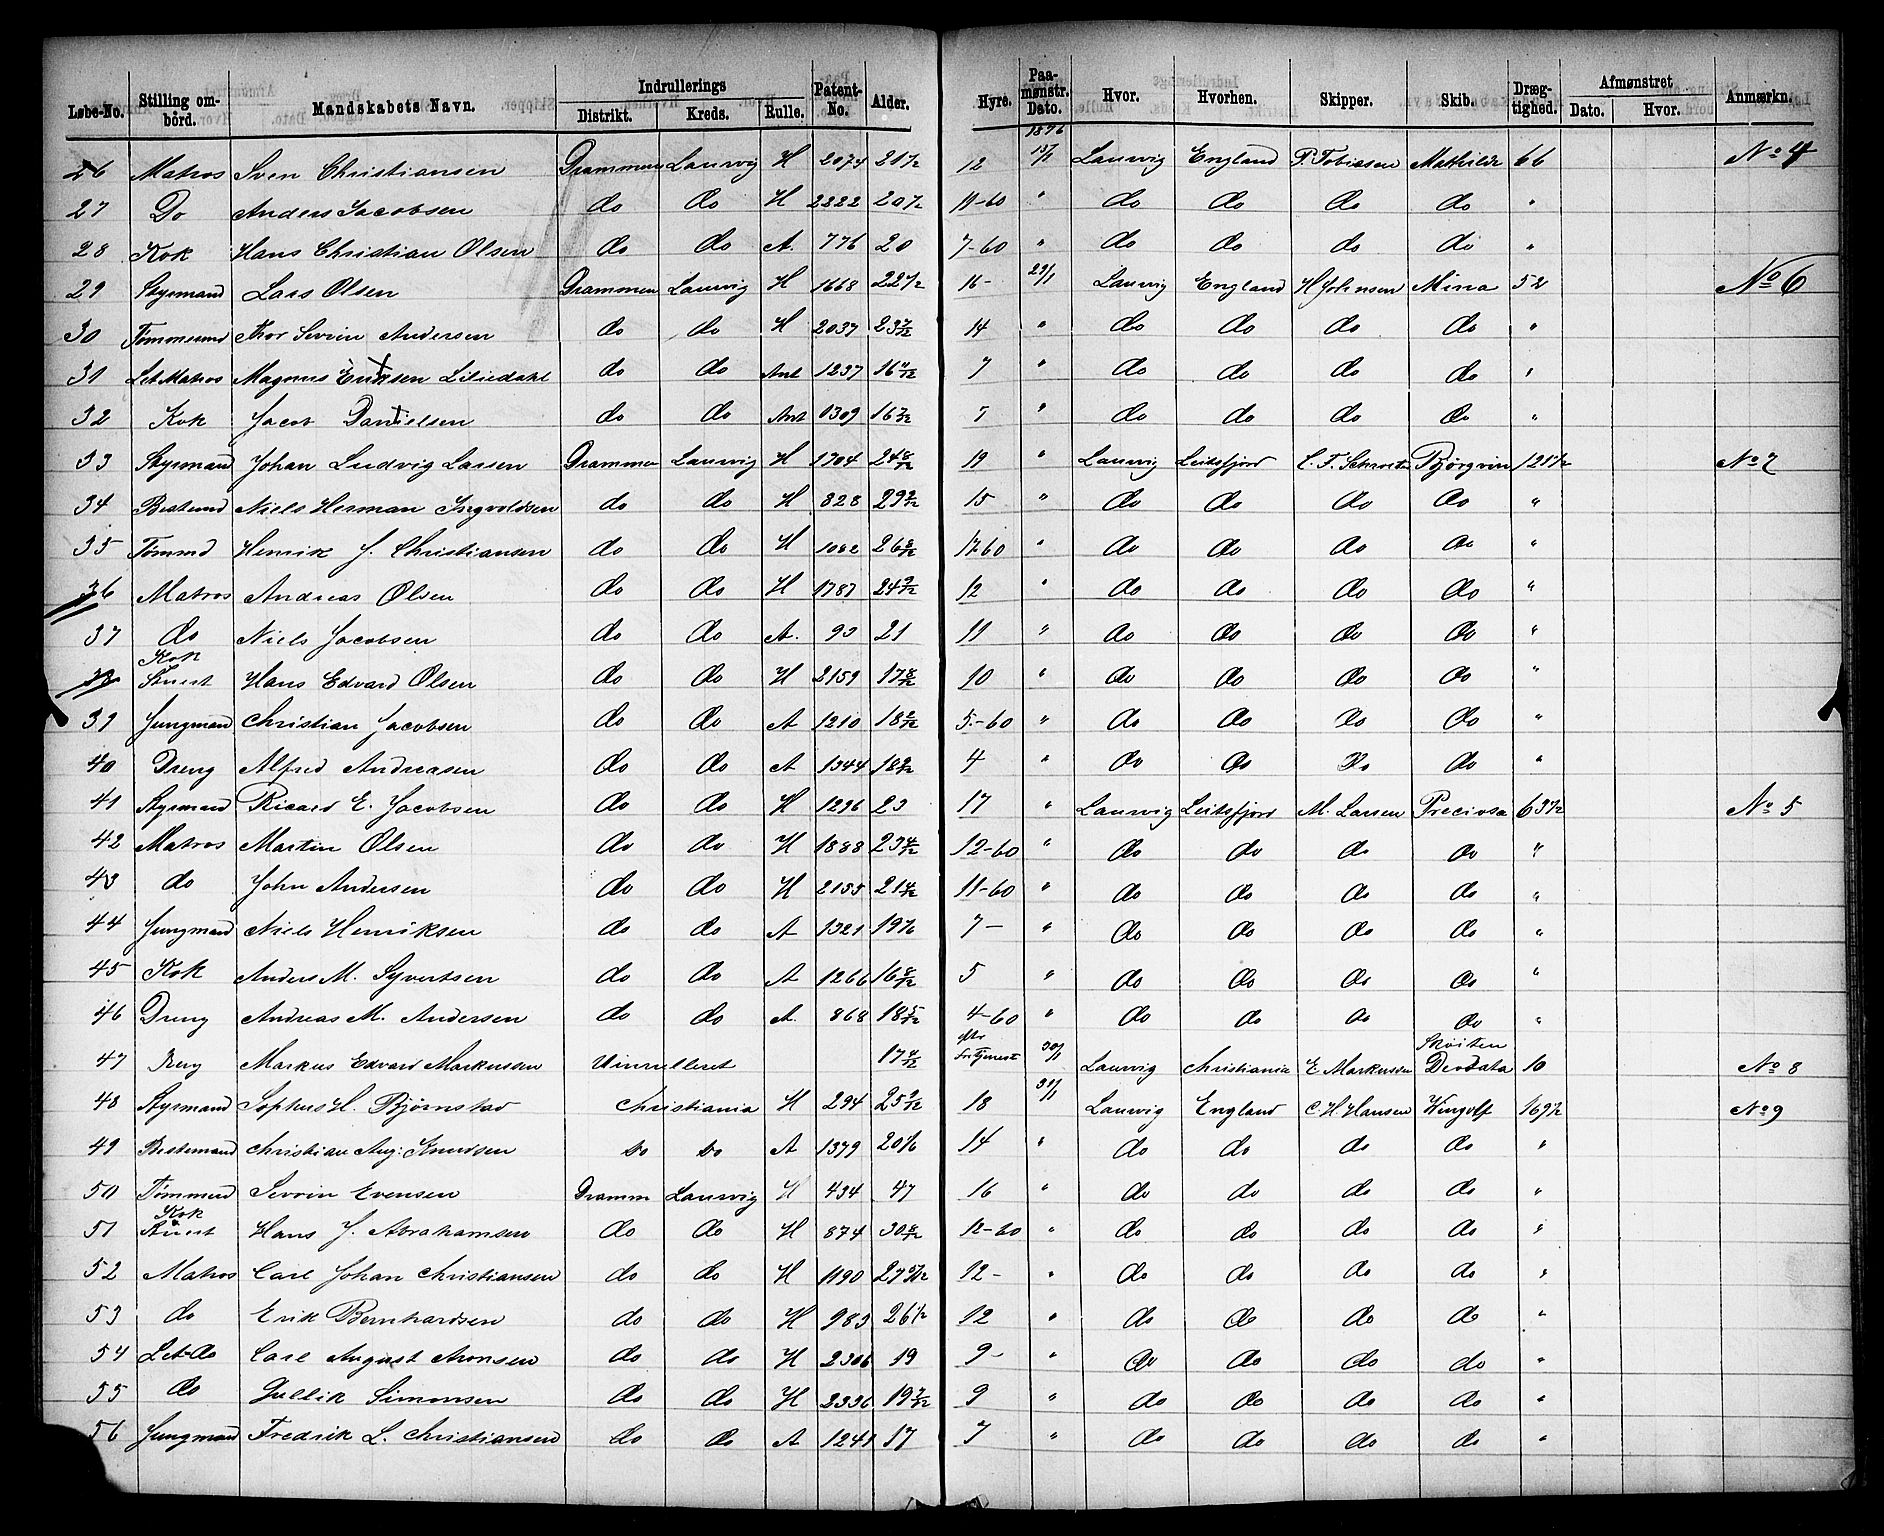 Løbe-No. | Stilling om-bård. | Mandskabets Navn. | Indrullerings Distrikt. | Kreds. | Rulle. | Patent-No. | Alder. | Hyre. | Paa-mønstr. Dato. | Hvor. | Hvorhen. | Skipper. | Skib. | Dræg-tighed. | Afmønstret Dato. | Hvor. | Anmærkn.
1876
26 Matros Sven Christiansen Drammen Laurvig H 2074 21 1/2 12 Laurvig England P. Tobiassen Mathilde 66 No 4
27 Do Anders Jacobsen do do H 2222 11-60 " do do do do "
28 Kok Hans Christian Olsen do do A. 776 20 7-60 " do do do do "
29 Styrmand Lars Olsen Drammen Laurvig H 1668 16- 29/1 Laurvig England H Johnsen Mina 52 No 6
30 Tømmermd Thor Severin Andersen do do H 2037 14 " do do do do "
31 Let Matros Magnus Eriksen Liliedahl do do Ant 1237 7 " do do do do "
32 Kok Jacob Danielsen do do Ant 1309 5 " do do do do "
33 Styrmand Johan Ludvig Larsen Drammen Laurvig H 1704 24 8/12 19 " Laurvig Leitsfjord C. F. Schrøter Bjørgvin 121 1/2 No 7
34 Bestemd Niels Herman Ingvoldsen do do H 828 15 " do do do do "
35 Tømmd Henrik J. Christiansen do do H 1082 26 8/12 12 60 " do do do do "
36 Matros Andreas Olsen do do H 1787 12 " do do do do "
37 do Niels Jacobsen do do A. 93 21 11 " do do do do "
38 Kok Stuert Hans Edvard Olsen do do H 2159 17 8/12 10 " do do do do "
39 Jungmand Christian Jacobsen do do A 1210 5.-60 " do do do do "
40 Dreng Alfred Andreasen do do A 1344 4 " do do do do "
41 Styrmand Ricard E. Jacobsen do do H 1296 23 17 " Laurvig Leitsfjord M. Larsen Preciosa 63 1/2 No 5
42 Matros Martin Olsen do do H 1888 12-60 " do do do do "
43 do John Andersen do do H 2155 11-60 " do do do do "
44 Jungmand Niels Henriksen do do A 1321 19 1/6 7- " do do do do "
45 Kok Anders M. Syvertsen do do A 1266 16 8/12 5 " do do do do "
46 Dreng Andreas M. Andersen do do A. 868 18 5/12 4-60 " do do do do "
47 Dreng Markus Edvard Markussen Uinrulleret 30/1 Laurvig Christiania E Markussen Skøiten Deodata 10 No 8
48 Styrmand Sophus H. Bjørnstad Christiania H 294 18 31/1 Laurvig England C. H. Hansen Wingolf 169 1/2 No 9
49 Bestemand Christian Aug: Knudsen do do A 1379 20 1/6 14 " do do do do "
50 Tømmermd Severin Evensen Dramm Laurvig H 434 47 16 " do do do do "
51 Kok Stuert Hans J. Abrahamsen do do H 874 30 8/12 12-60 " do do do do "
52 Matros Carl Johan Christiansen do do H 1190 12- " do do do do "
53 do Erik Bernhardsen do do H 983 26 1/2 12 " do do do do "
54 Let do Carl August Aronsen do do H 2306 19 9- " do do do do "
55 do Gullik Simonsen do do H 2336 9 " do do do do "
56 Jungmand Fredrik L. Christiansen do do A 1241 17 7 " do do do do "